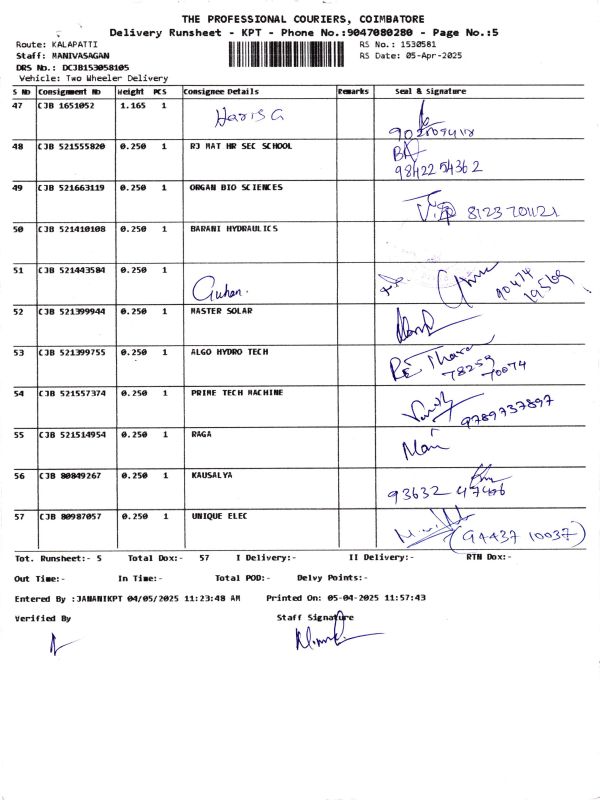 THE PROFESSIONAL COURIERS, COIMBATORE
Delivery Runsheet - KPT - Phone No.:9047080280 - Page No.:5
Route: KALAPATTI RS No.: 1530581
Staff: MANIVASAGAN RS Date: 05-Apr-2025
DRS No.: DCJB153058105
Vehicle: Two Wheeler Delivery
S No Consignment No Weight PCS Consignee Details Remarks Seal & Signature
47 CJB 1651052 1.165 1 Haris G
48 CJB 521555820 0.250 1 RJ MAT HR SEC SCHOOL
9842254362
49 CJB 521663119 0.250 1 ORGAN BIO SCIENCES
8123701121
50 CJB 521410108 0.250 1 BARANI HYDRAULICS
51 CJB 521443584 0.250 1 Guhan.
90474
19569
52 CJB 521399944 0.250 1 MASTER SOLAR
53 CJB 521399755 0.250 1 ALGO HYDRO TECH
78259
70074
54 CJB 521557374 0.250 1 PRIME TECH MACHINE
9789737897
55 CJB 521514954 0.250 1 RAGA Mani
56 CJB 80849267 0.250 1 KAUSALYA
93632 47476
57 CJB 80987057 0.250 1 UNIQUE ELEC
(94437 10037)
Tot. Runsheet:- 5 Total Dox:- 57 I Delivery:- II Delivery:- RTN Dox:-
Out Time:- In Time:- Total POD:- Delvy Points:-
Entered By :JANANIKPT 04/05/2025 11:23:48 AM Printed On: 05-04-2025 11:57:43
Verified By Staff Signature